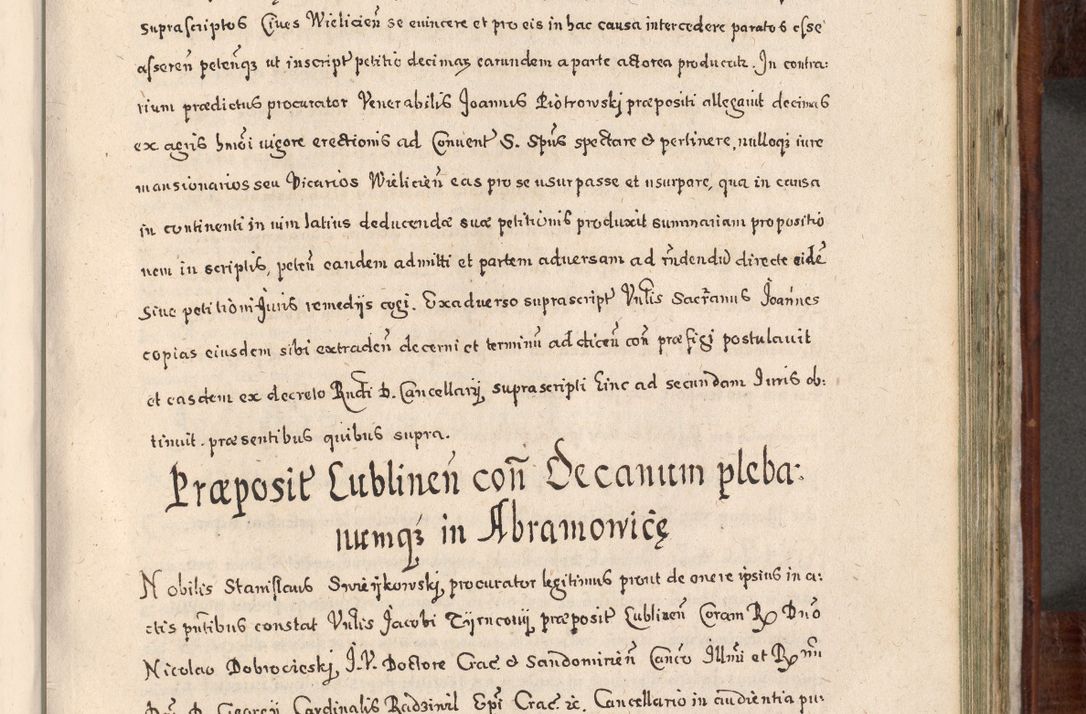 suprascriptos Cives Wielicien̄ se evincere et pro eis in hac causa intercedere paratos esse
asseren̄ peten̄q₃ ut inscript petitio decimaꝝ earundem a parte actorea producatr. In contra-
rium prædictus procurator Venerabilis Joannis Piotrowski præpositi allegavit decimas
ex agris hm̄oi vigore erectionis ad Convent S. Spūs spectare & pertinere, nulloq₃ iure
mansionarios seu Vicarios Wielicien̄ eas pro se usurpasse et usurpare, qua in causa
in continenti in vim latius deducendæ suæ petitionis produxit summariam propositio
nem in scriptis, peten̄ eandem admitti et partem adversam ad rn̄dendū directe eidē
sive petitioni Juris remedijs cogi. Ex adverso suprascript Vn̄lis Sacranus Joannes
copias eiusdem sibi extraden̄ decerni et terminū ad dicen̄ con̄ præfigi postulavit
et easdem ex decreto Rndi D. Cancellarij suprascripti hinc ad secundam Juris ob-
tinuit. præsentibus quibus supra.
Præposit Lublinen̄ con̄ Decanum pleba-
numq₃ in Abramowicę
Nobilis Stanislaus Swieijkowskj, procurator legitimus prout de onere ipsius in a-
ctis pn̄tibus constat Vn̄lis Jacobi præposit Lublinen̄ Coram R Dn̄o
Nicolao Dobrocieskj, J.V. Doctore Crac & Sandomirien̄ Can̄co Illmi et R mi
Dn̄i D. Georgij Cardinalis Radziwil Epi Crac &c. Cancellario in audientia pu-